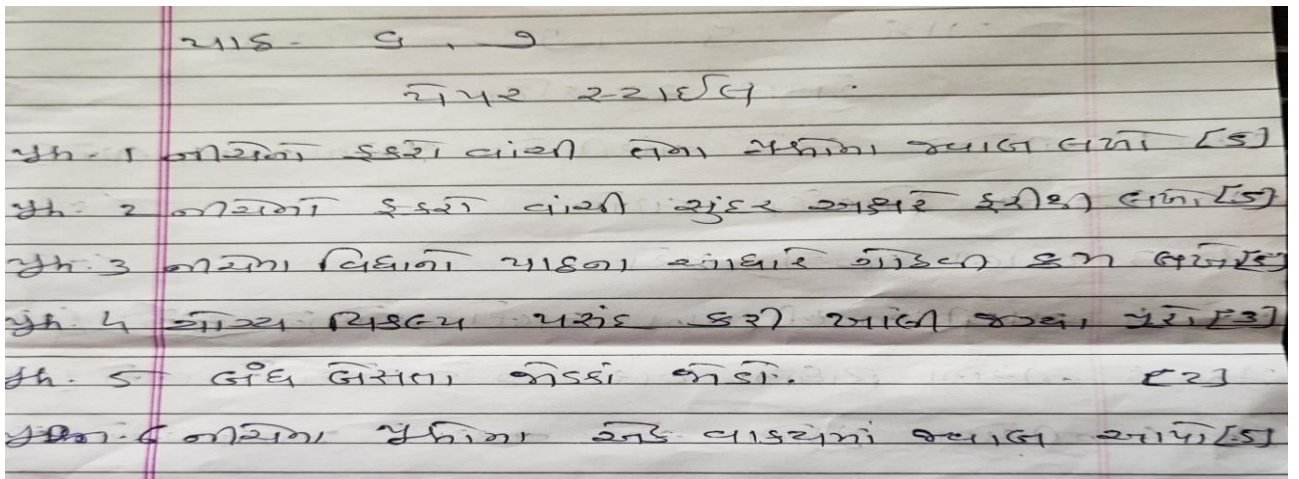 પાઠ - ૬ . ૭
પેપર સ્ટાઈલ
પ્રશ્ન. 1 નીચેનો ફકરો વાંચી તેના પ્રશ્નોના જવાબ લખો [5]
પ્રશ્ન. 2 નીચેનો ફકરો વાંચી સુંદર અક્ષરે ફરીથી લખો [5]
પ્રશ્ન. 3 નીચેના વિધાનો પાઠના આધારે ગોઠવી ક્રમ લખો
પ્રશ્ન. 4 યોગ્ય વિકલ્પ પસંદ કરી ખાલી જગ્યા પૂરો [3]
પ્રશ્ન. 5 બંધ બેસતા જોડકાં જોડો. [2]
નીચેના પ્રશ્નોના એક વાક્યમાં જવાબ આપો [5]